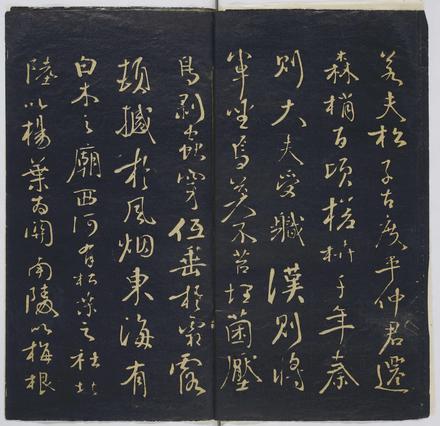 若夫松子古度平仲君遷
森梢百頃槎枿千年秦
則大夫受職漢則將
軍坐焉莫不苔埋菌壓
鳥剝虫穿低垂於霜露
頓撼於風烟東海有
白木之廟西河有枯桑之社北
陸以楊葉為關南陵以梅根